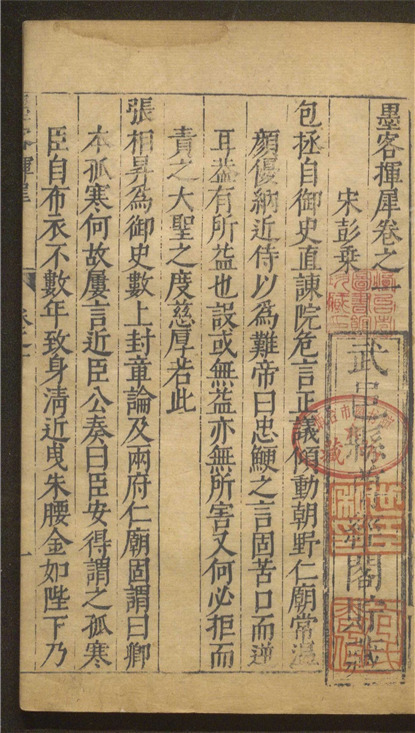 墨客揮犀卷之一
宋彭乗
包拯自御史直諫院危言正議傾動朝野仁廟常温
顔優納近侍以為難帝曰忠鯁之言固苦口而逆
耳葢有所益也設或無益亦無所害又何必拒而
責之大聖之度慈厚若此
張相昇為御史數上封章論及兩府仁廟固謂曰卿
本孤寒何故屢言近臣公奏曰臣安得謂之孤寒
臣自布衣不數年致身清近曳朱腰金如陛下乃
一